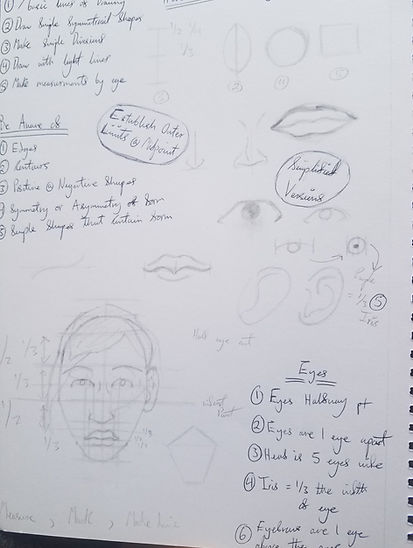 ① / basic lines of Drawing
② Draw Simple Symmetrical Shapes
③ Make Simple Divisions
④ Draw with light lines
⑤ Make measurements by eye
1/2 1/4
1/3
③
②
④
⑤
Be Aware of
① Edges
② Contours
③ Positive @ Negative Shapes
Symmetry or Asymmetry of Form
⑤ Simple Shapes that contain form
Establish Outer
Limits @ Midpoint
Simplified
Versions
Pupil
= 1/3 ⑤
Iris
eye
1/2 1/3
1/2
1/3
Point
Eyes
① Eyes Halfway pt
② Eyes are 1 eye apart
③ Head is 5 eyes wide
④ Iris = 1/3 the width
of eye
⑥ Eyebrows are 1 eye
above the
Measure, Mark, Make Line